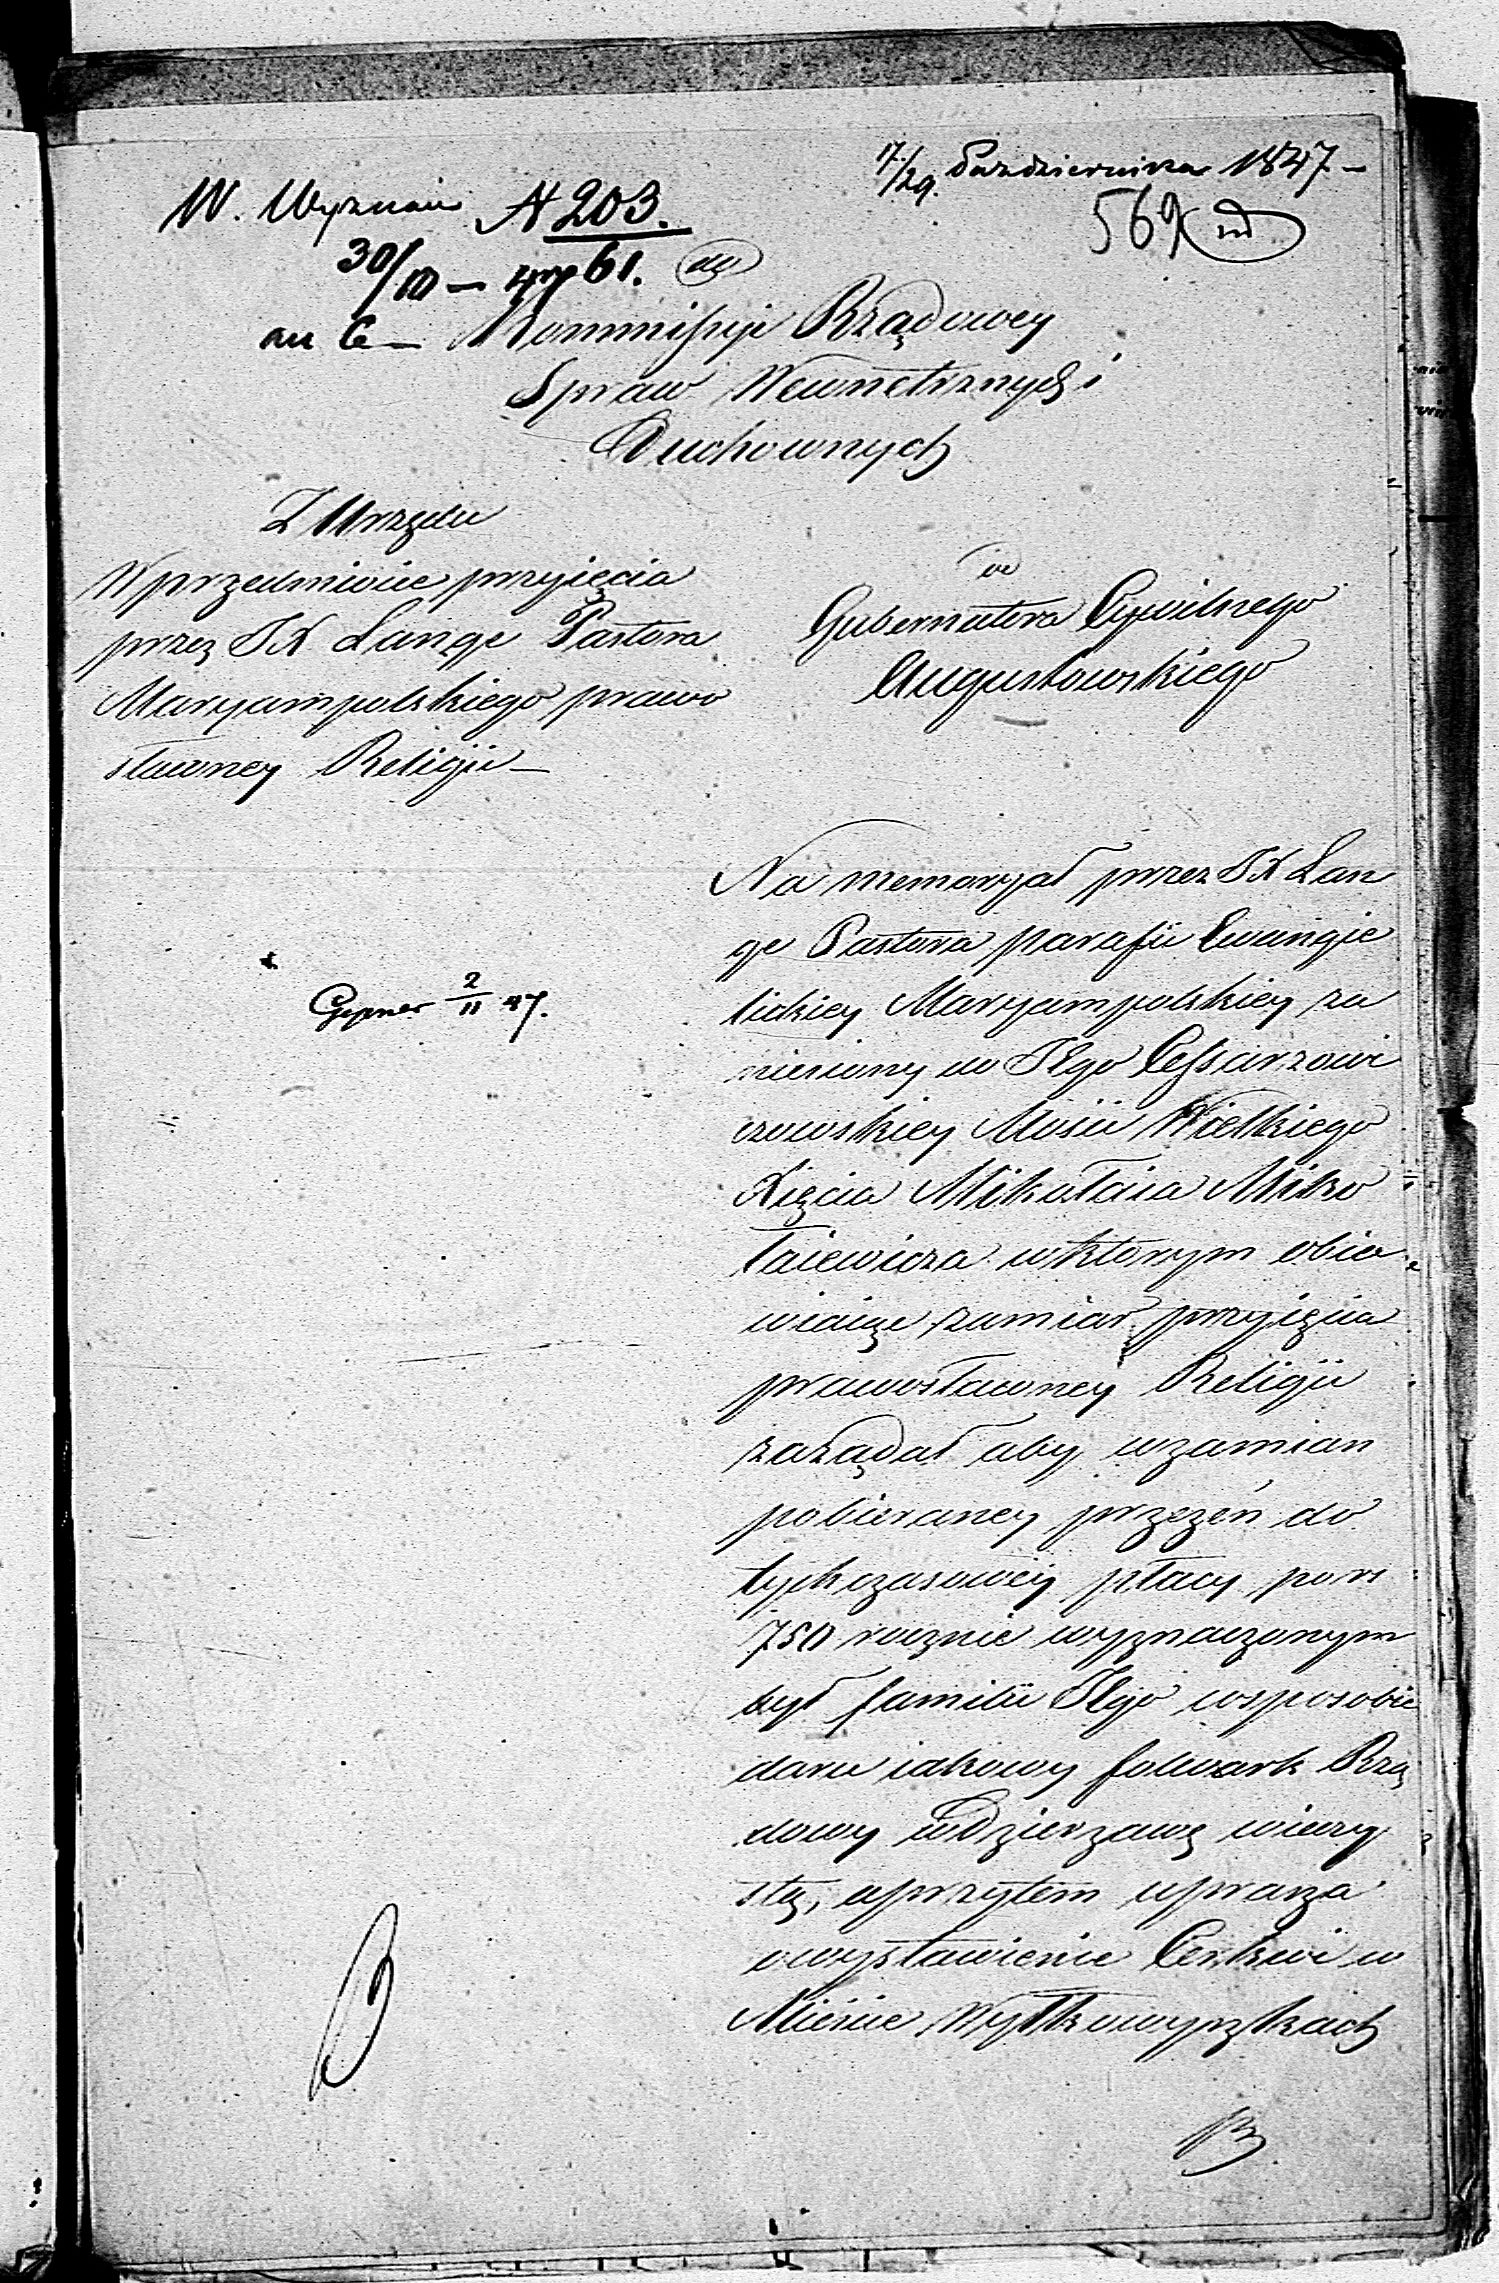 17/29 Pazdziernika 1847 –
W. Wyznań № 203.
569
30/10 – 47 61.
Kommissyi Rządowey
Spraw Wewnetrznych i
Duchownych
Z Urzędu
W przedmiocie przyięcia
przez JX Lange Pastora
Maryampolskiego prawo
sławney Religii –
do
Gubernatora Cywilnego
Augustowskiego
Na memoryał przez JX Lan
ge Pastora parafii Ewangie
lickiey Maryampolskiey za
niesiony do Jego Cessarzowi
czowskiey Mości Wielkiego
Xięcia Mikołaia Miko
łaiewicza w którym obia
wiaiąc zamiar przyięcia
prawosławney Religii
zażądał aby wzamian
pobieraney przezeń do
tychczasowey płacy po rs
750 rocznie wyznaczonym
był familii Jego wsposobie
daru iakowy folwark Rzą
dowy wdzierzawę wieczy
stą, a przytem uprasza
o wystawienie Cerkwi w
Mieście Wyłkowyszkach
Gepner 2/11 47.